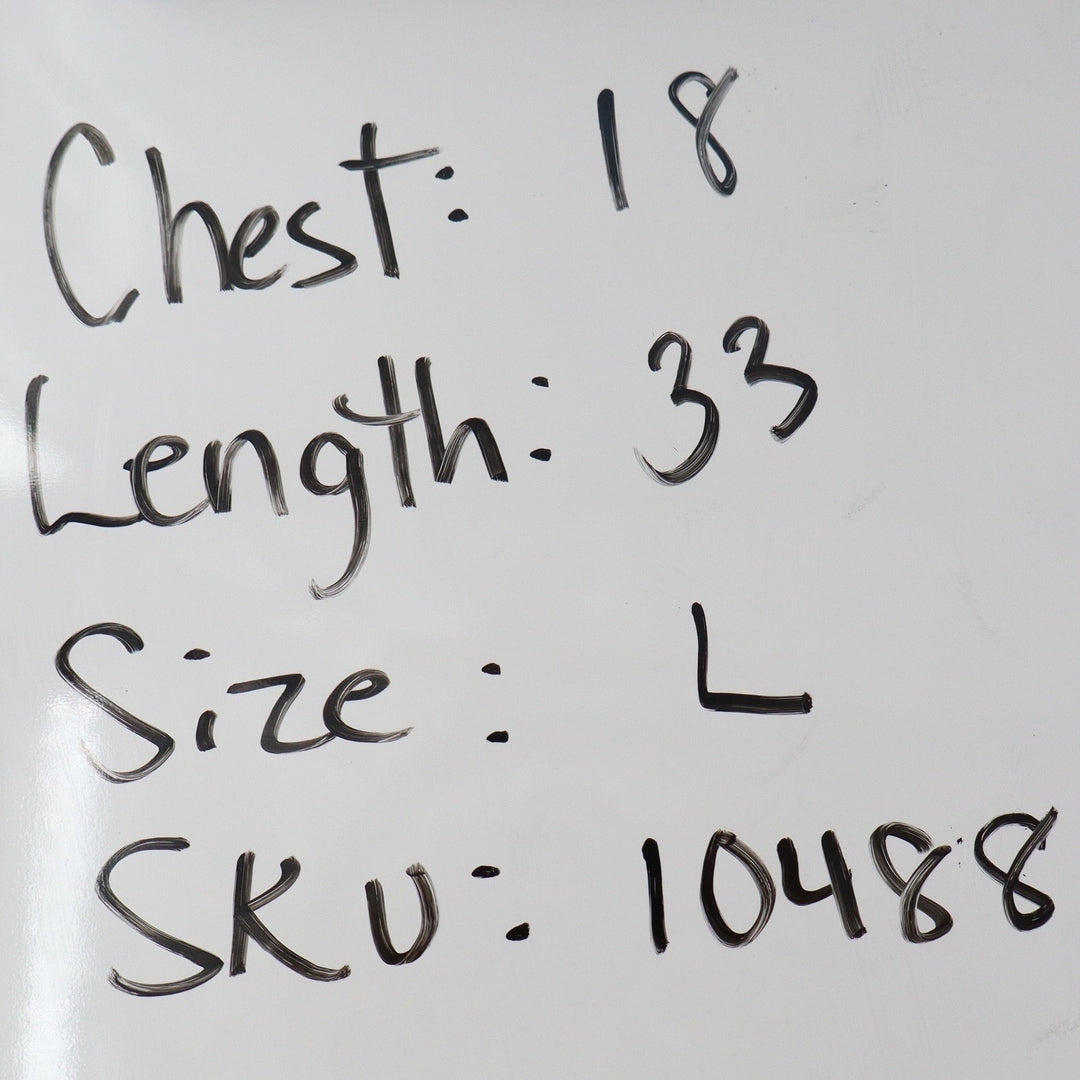 Chest: 18
Length: 33
Size: L
SKU: 10488